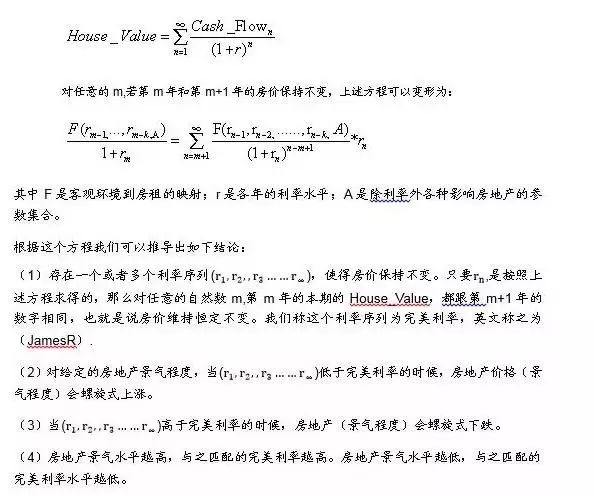 House _ Value = ∑_{n=1}^{∞} Cash _Flow_n / (1+r)^n
对任意的 m,若第 m 年和第 m+1 年的房价保持不变，上述方程可以变形为：
F(r_{m-1},...,r_{m-k},A) / 1+r_m = ∑_{n=m+1}^{∞} F(r_{n-1},r_{n-2},……,r_{n-k}, A) / (1+r_n)^{n-m+1} *r_n
其中 F 是客观环境到房租的映射；r 是各年的利率水平；A 是除利率外各种影响房地产的参
数集合。
根据这个方程我们可以推导出如下结论：
（1）存在一个或者多个利率序列(r₁,r₂,,r₃……r∞)，使得房价保持不变。只要r_n,是按照上
述方程求得的，那么对任意的自然数 m,第 m 年的本期的 House_Value，都跟第 m+1 年的
数字相同，也就是说房价维持恒定不变。我们称这个利率序列为完美利率，英文称之为
（JamesR）.
（2）对给定的房地产景气程度，当(r₁,r₂,,r₃……r∞)低于完美利率的时候，房地产价格（景
气程度）会螺旋式上涨。
（3）当(r₁,r₂,,r₃……r∞)高于完美利率的时候，房地产（景气程度）会螺旋式下跌。
（4）房地产景气水平越高，与之匹配的完美利率越高。房地产景气水平越低，与之匹配的
完美利率水平越低。